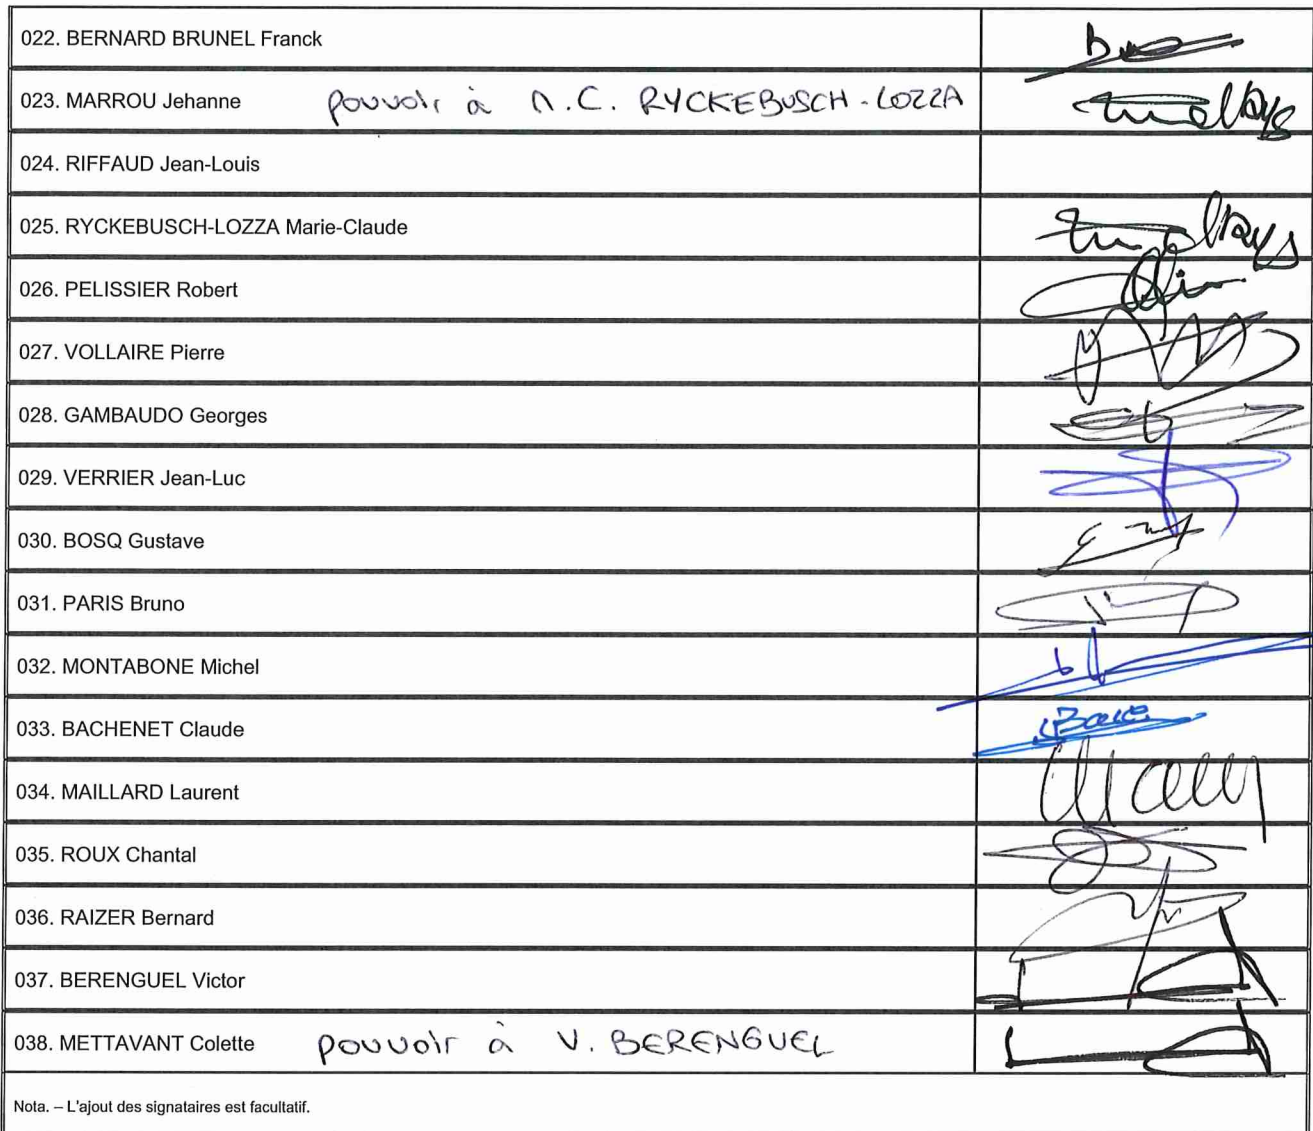 022. BERNARD BRUNEL Franck
023. MARROU Jehanne pouvoir à M.C. RYCKEBUSCH-LOZZA
024. RIFFAUD Jean-Louis
025. RYCKEBUSCH-LOZZA Marie-Claude
026. PELISSIER Robert
027. VOLLAIRE Pierre
028. GAMBAUDO Georges
029. VERRIER Jean-Luc
030. BOSQ Gustave
031. PARIS Bruno
032. MONTABONE Michel
033. BACHENET Claude
034. MAILLARD Laurent
035. ROUX Chantal
036. RAIZER Bernard
037. BERENGUEL Victor
038. METTAVANT Colette pouvoir à V. BERENGUEL
Nota. – L'ajout des signataires est facultatif.